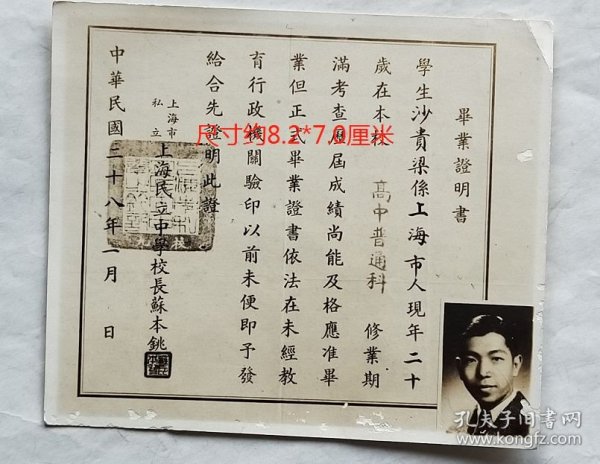 畢業證明書
學生沙貴梁係上海市人現年二十
歲在本校高中普通科修業期
滿考查歷屆成績尚能及格應准畢
業但正式畢業證書依法在未經教
育行政機關驗印以前未便即予發
給合先證明此證
上海市
私立
上海民立中學校長蘇本銚
中華民國三十八年一月 日
尺寸约8.2*7.0厘米
孔夫子旧书网
www.kongfz.com